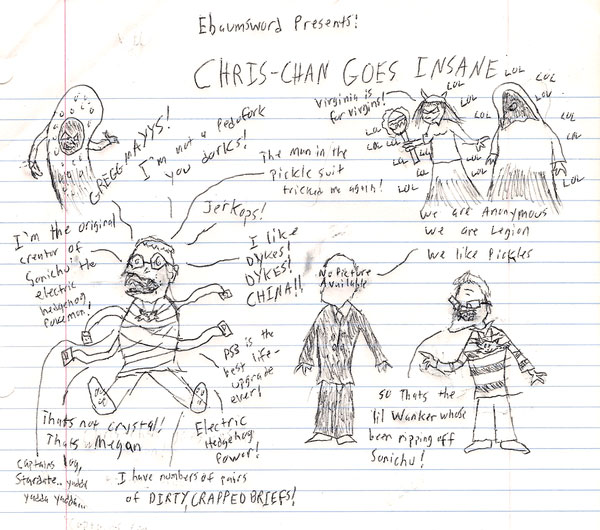 Ebaumsword Presents!
CHRIS-CHAN GOES INSANE
GREGG MAYYS!
I'm not a Pedofork
you dorks!
The man in the
pickle suit
tricked me again!
Jerkops!
Virginia is
for virgins!
LOL LOL LOL LOL
LOL LOL
LOL LOL LOL
LOL LOL LOL LOL
LOL LOL LOL
LOL LOL LOL
We are Anonymous
We are Legion
We like Pickles
I'm the original
creator of
Sonichu the
electric
hedgehog
Pokemon!
I like
DYKES!
DYKES!
CHINA!!
No Picture
Available
PS3 is the
best life-
upgrade
ever!
Electric
Hedgehog
Power!
Thats not crystal!
Thats Megan
Captains log,
Stardate.. yadda
yadda yadda...
I have numbers of pairs
of DIRTY, CRAPPED BRIEFS!
So thats the
lil Wanker whose
been ripping off
Sonichu!